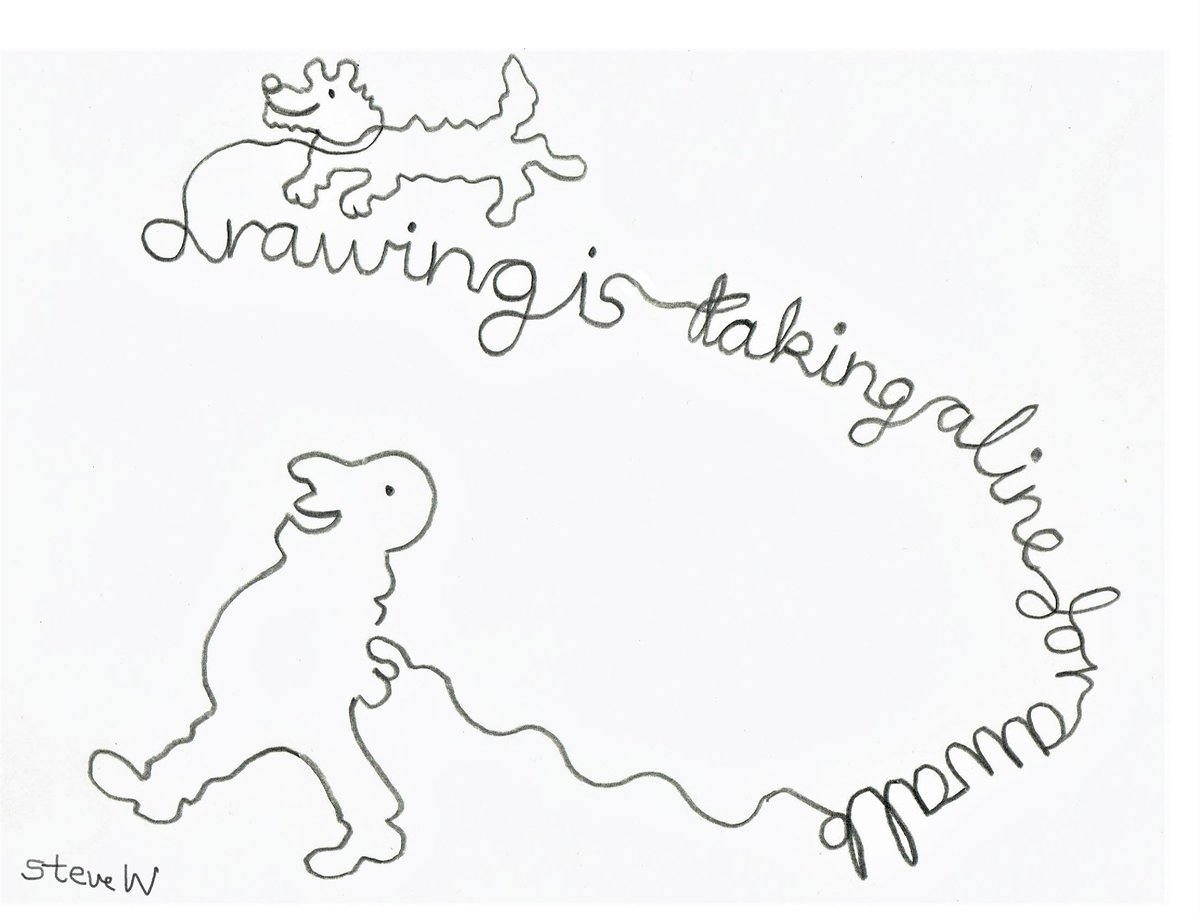 drawing is taking a line for a walk
Steve W